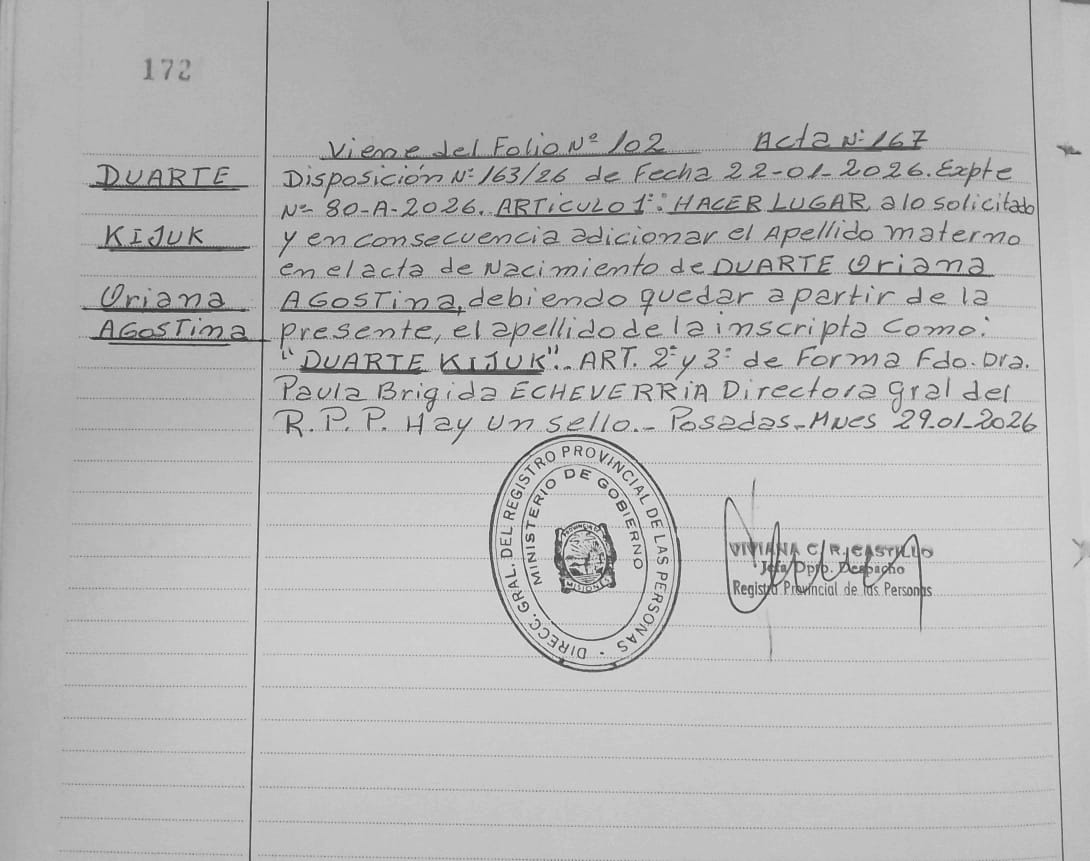 172
Viene del Folio Nº 102 Acta Nº 167
DUARTE
KIJUK
Oriana
AGOSTina
Disposición Nº 163/26 de Fecha 22-01-2026. Expte
Nº 80-A-2026. ARTICULO 1º: HACER LUGAR a lo solicitado
y en consecuencia adicionar el Apellido materno
en el acta de Nacimiento de DUARTE Oriana
AGOSTina, debiendo quedar a partir de la
presente, el apellido de la inscripta como:
"DUARTE KIJUK".. ART. 2º y 3º de Forma Fdo. Dra.
Paula Brigida ECHEVERRiA Directora gral del
R.P.P. Hay un sello.- Posadas-Mnes 29-01-2026
DIRECC. GRAL. DEL REGISTRO PROVINCIAL DE LAS PERSONAS
MINISTERIO DE GOBIERNO
MISIONES
VIVIANA C/R. CASTILLO
Jefa Dpto. Despacho
Registro Provincial de las Personas